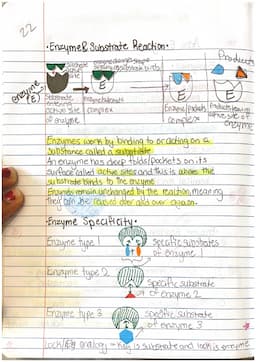 22
• Enzyme & Substrate Reaction •
Products
Enzyme
E
E
E
E
Substrate
enters
active site
of enzyme
Enzyme/substrate
complex
Enzyme/products
complex
Products leaving
active site of
enzyme
Enzymes work by binding to or acting on a
substance called a substrate
An enzyme has deep folds/pockets on its
surface called active sites and this is where the
substrate binds to the enzyme
Enzymes remain unchanged by the reaction, meaning
they can be reused over and over again.
• Enzyme Specificity •
Enzyme type 1
specific substrates
of enzyme 1
Enzyme type 2
Specific substrate
of enzyme 2
Enzyme type 3
Specific substrate
of enzyme 3
Lock/Key analogy → Key is substrate and lock is enzyme